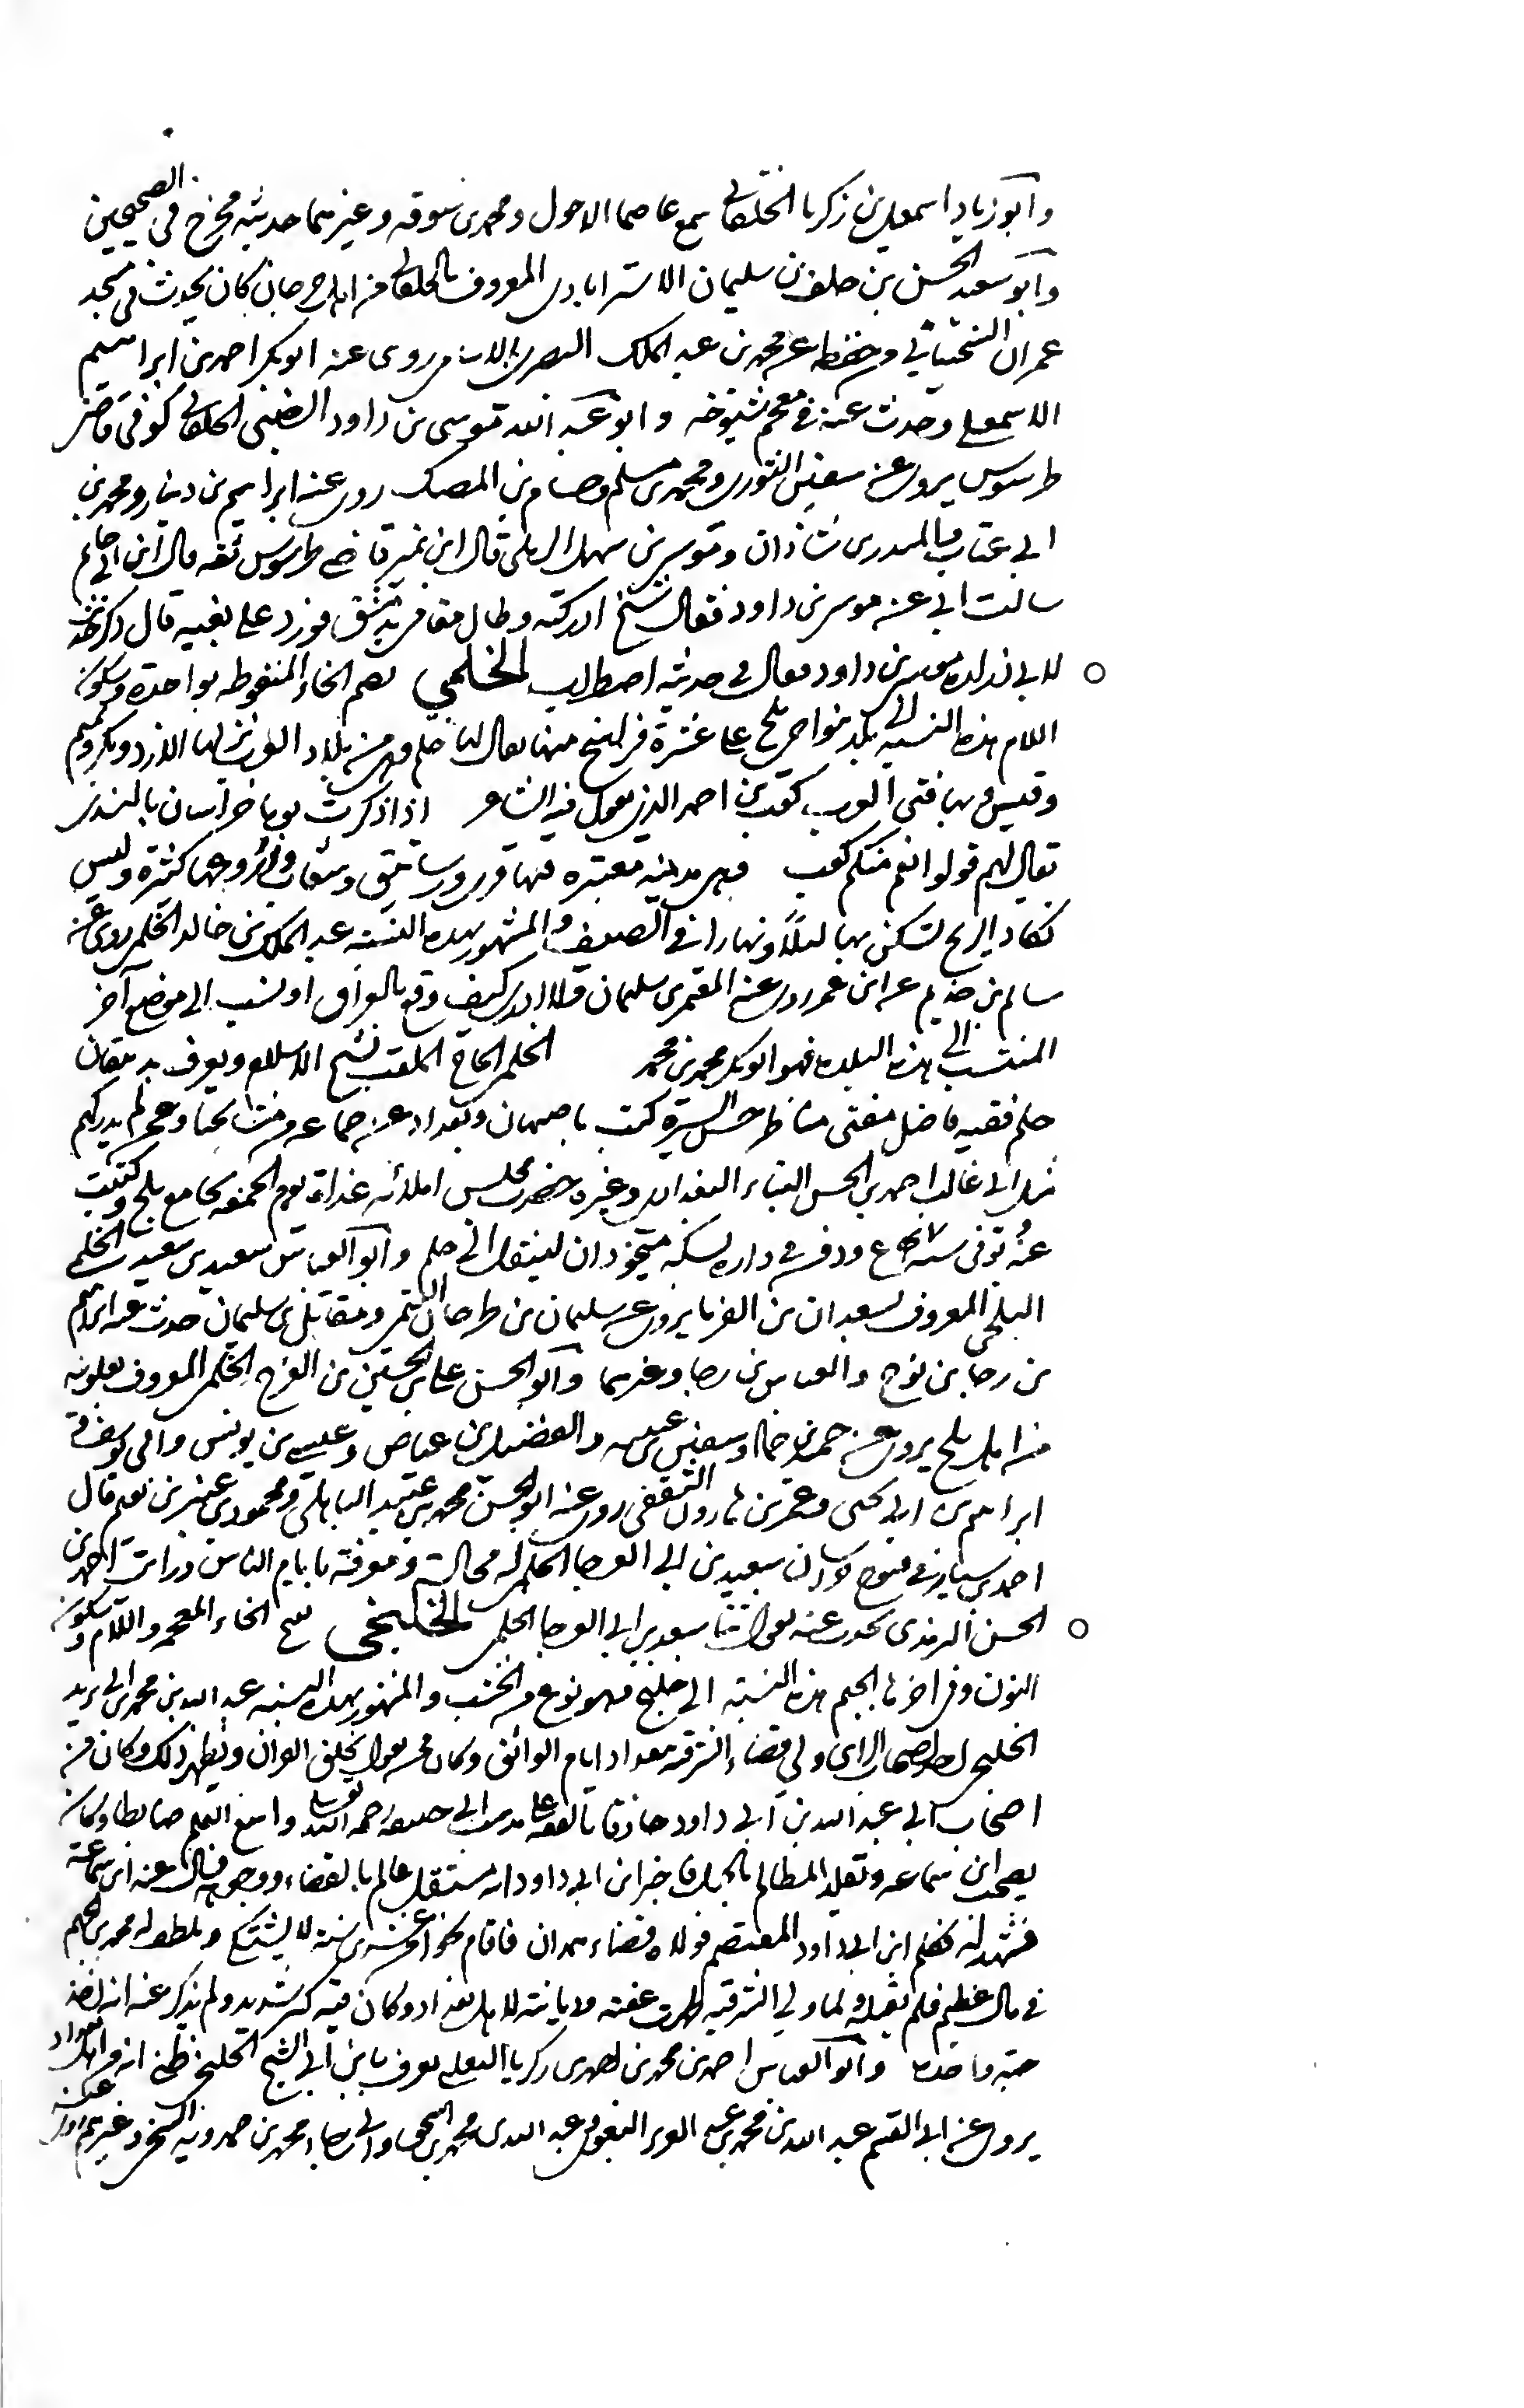 وابو زياد اسمعيل بن زكريا الخلقاني سمع عاصما الاحول ومحمد بن سوقه وغيرهما حديثه مخرج في الصحيحين
وابو سعيد الحسن بن خلف بن سليمان الاستراباذي المعروف بالخلقاني من اهل جرجان كان يحدث في مسجد
عمران السختياني وحفظه عن محمد بن عبد الملك روى عنه ابو بكر احمد بن ابراهيم
الاسمعيلي وحدث عنه في معجم شيوخه وابو عبد الله موسى بن داود الضبي الخلقاني كوفي قاضي
طرسوس يروي عن سفين الثوري ومحمد بن مسلم وحسام بن المصك روى عنه ابراهيم بن دينار ومحمد بن
ابي عتاب شاذان وموسى بن سهل الرملي قال ابن نمير قاضي طرسوس ثقه قال ابن ابي حاتم
سالت ابي عن موسى بن داود فقال شيخ ادركته وطال مقامي بدمشق فورد علي نعيه قال ذكر
لابي موسى بن داود فقال في حديثه اضطراب الخلمي بضم الخاء المنقوطه بواحدة وسكون
اللام هذه النسبه الى بلد بنواحي بلخ على عشرة فراسخ منها يقال لها خلم وهي من بلاد العرب نزلها الازد وبكر وتميم
وقيس وبها فتى العرب كعب بن احمد الذي يقول فيه الشاعر اذا ذكرت يوما خراسان بالندى
تعال لهم قولوا انعم منكم كعب وهي مدينه معتبره فيها قرى ورساتيق وشعاب وزروعها كثيرة وليس
تكاد الريح تسكن بها ليلا ونهارا في الصيف والمشهور بهذه النسبه عبد الملك بن خالد الخلمي يروي عن
سالم بن عن ابن عمر روى عنه المعتمر بن سليمان ولا ادري كيف وقع بالعراق او نسب الى موضع آخر
المنتسب الى هذه البلده فهو ابو بكر محمد بن محمد الخلمي الحاج الملقب بشيخ الاسلام ويعرف بدهقان
خلم فقيه فاضل مفتي مناظر حسن السيرة كتب باصبهان وبغداد عن جماعه من مشايخنا وممن لم ندركهم
مثل ابي غالب احمد بن الحسن البناء البغدادي وغيره حضرت مجلس املائه غداة يوم الجمعه بجامع بلخ وكتبت
عنه توفي سنه ودفن في داره بسكه لينقل الى خلم وابو العباس سعيد بن سعيد الخلمي
البلخي المعروف بسعدان بن يروي عن سليمان بن طرخان التيمي ومقاتل بن سليمان حدث عنه ابراهيم
بن رجا بن نوح والعباس بن رجا وغيرهما وابو الحسن علي بن الحسين بن الفرج الخلمي المعروف بعلويه
من اهل بلخ يروي عن حميد بن حماد وسفين بن عيينه والفضيل بن عياض وعيسى بن يونس
ابراهيم بن ابي يحيى وعمر بن هارون الثقفي روى عنه ابو الحسن محمد بن عبيد الباهلي ومحمود بن عنبر بن نعيم قال
احمد بن سيار في فتوح خراسان سعيد بن ابي العوجا الخلمي له مجالسة ومعرفة بايام الناس ورايت احمد بن
الحسن الترمذي يحدث عنه يقول ثنا سعيد بن ابي العوجا الخلمي الخلنجي بفتح الخاء المعجمه واللام وسكون
النون وفي آخرها الجيم هذه النسبه الى خلنج وهو نوع من الخشب والمشهور بهذه النسبه عبد الله بن محمد بن ابي يزيد
الخلنجي احد اصحاب الراي ولي قضاء الشرقيه ببغداد ايام الواثق وكان ممن يقول بخلق القران ويظهر ذلك وكان من
اصحاب ابي عبد الله بن ابي داود حاذقا بالفقه على مذهب ابي حنيفه رحمه الله تعالى واسع العلم ضابطا وكان
يصحب ابن سماعه وتقلد المظالم بالجبل فاخبر ابن ابي داود انه مستقل عالم بالقضاء ووجوهه فسال عنه ابن سماعة
فشهد له فكلم ابن ابي داود المعتصم فولاه قضاء همدان فاقام نحوا من عشرين سنة لا يشتكى وتلطف له محمد بن الجهم
في مال عظيم فلم يقبله ولما ولي الشرقيه ظهرت عفته وديانته لاهل بغداد وكان فيه كبر شديد ولم يذكر عنه انه اخذ
حبه واحده وابو العباس احمد بن محمد بن احمد بن زكريا الثعلبي يعرف بابن ابي الشيخ الخلنجي ظني انه من اهل بغداد
يروي عن ابي القسم عبد الله بن محمد بن عبد العزيز البغوي وعبد الله بن محمد بن اسحق وابي رجا محمد بن حمدويه السنجي وغيرهم روى عنه